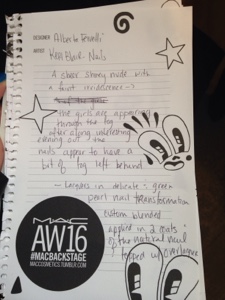 DESIGNER: Alberta Ferretti
ARTIST: Keri Blair - Nails
A sheer shiny nude with
a faint iridescence ->
the girls are appearing
through the fog
after along interesting
evening out & the
nails appear to have a
bit of fog left behind
- Lacquers in delicate : green
pearl nail transformation
custom blended
applied in 2 coats
of the natural nail
topped w/ overlacquer
MAC
AW16
#MACBACKSTAGE
MACCOSMETICS.TUMBLR.COM